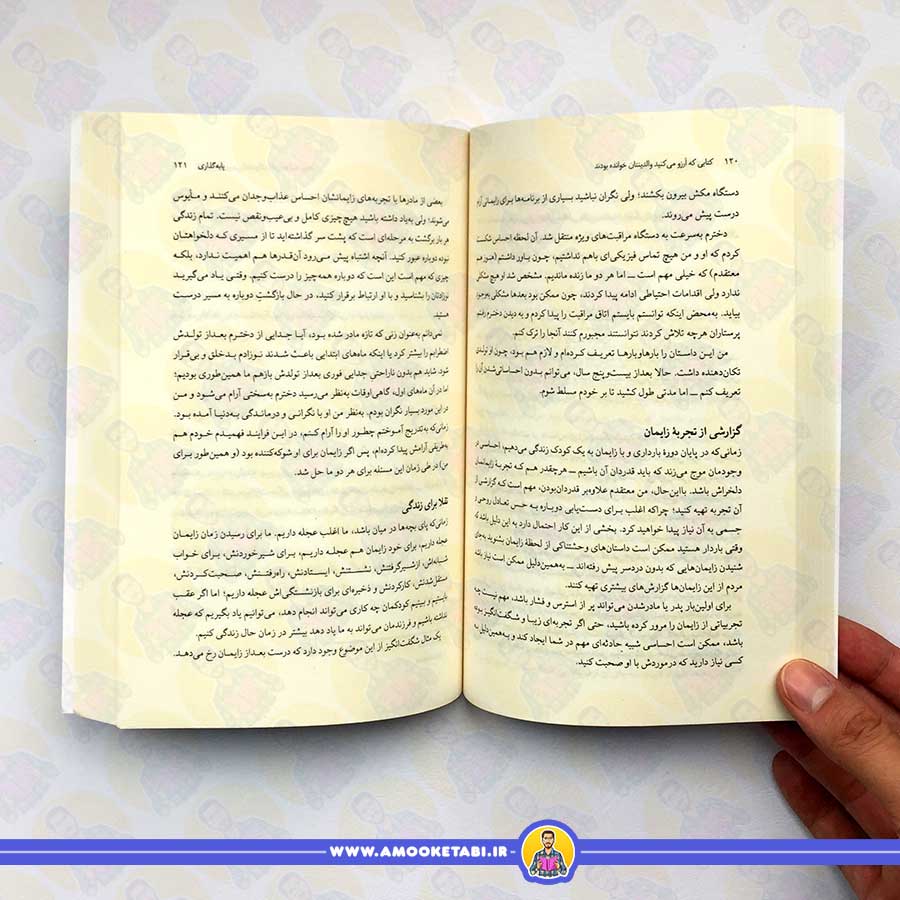 ۱۲۰ کتابی که آرزو می‌کنید والدینتان خوانده بودند
دستگاه مکش بیرون بکشند؛ ولی نگران نباشید بسیاری از برنامه‌ها برای زایمانی آرام
درست پیش می‌روند.
دخترم به‌سرعت به دستگاه مراقبت‌های ویژه منتقل شد. آن لحظه احساس شکست
کردم که او و من هیچ تماس فیزیکی‌ای باهم نداشتیم، چون باور داشتم (هنوز هم
معتقدم) که خیلی مهم است ــ اما هر دو ما زنده ماندیم. مشخص شد او هیچ مشکلی
ندارد ولی اقدامات احتیاطی ادامه پیدا کردند، چون ممکن بود بعدها مشکلی به‌وجود
بیاید. به‌محض اینکه توانستم بایستم اتاق مراقبت را پیدا کردم و به دیدن دخترم رفتم.
پرستاران هرچه تلاش کردند نتوانستند مجبورم کنند آنجا را ترک کنم.
من این داستان را بارهاوبارها تعریف کرده‌ام و لازم هم بود، چون از تولدی
تکان‌دهنده داشت. حالا بعداز بیست‌وپنج سال، می‌توانم بدون احساساتی‌شدن آن را
تعریف کنم ــ اما مدتی طول کشید تا بر خودم مسلط شوم.
گزارشی از تجربهٔ زایمان
زمانی‌که در پایان دورهٔ بارداری و با زایمان به یک کودک زندگی می‌دهیم، احساسی در
وجودمان موج می‌زند که باید قدردان آن باشیم ــ هرچقدر هم که تجربهٔ زایمانمان
دلخراش باشد. بااین‌حال، من معتقدم علاوه‌بر قدردان‌بودن، مهم است که گزارشی از
آن تجربه تهیه کنید؛ چراکه اغلب برای دست‌یابی دوباره به حس تعادل روحی و
جسمی به آن نیاز پیدا خواهید کرد. بخشی از این کار احتمال دارد به این دلیل باشد که
وقتی باردار هستید ممکن است داستان‌های وحشتناکی از لحظهٔ زایمان بشنوید به‌جای
شنیدن زایمان‌هایی که بدون دردسر پیش رفته‌اند ــ به‌همین‌دلیل ممکن است نیاز باشد
مردم از این زایمان‌ها گزارش‌های بیشتری تهیه کنند.
برای اولین‌بار پدر یا مادرشدن می‌تواند پر از استرس و فشار باشد، مهم نیست چه
تجربیاتی از زایمان را مرور کرده باشید، حتی اگر تجربه‌ای زیبا و شگفت‌انگیز بوده
باشد، ممکن است احساسی شبیهِ حادثه‌ای مهم در شما ایجاد کند و به‌همین‌دلیل به
کسی نیاز دارید که درموردش با او صحبت کنید.
پایه‌گذاری ۱۲۱
بعضی از مادرها با تجربه‌های زایمانشان احساس عذاب‌وجدان می‌کنند و مأیوس
می‌شوند؛ ولی به‌یاد داشته باشید هیچ‌چیزی کامل و بی‌عیب‌ونقص نیست. تمام زندگی
هر بار برگشت به مرحله‌ای است که پشت سر گذاشته‌اید تا از مسیری که دلخواهتان
نبوده دوباره عبور کنید. آنچه اشتباه پیش می‌رود آن‌قدرها هم اهمیت ندارد، بلکه
چیزی که مهم است این است که دوباره همه‌چیز را درست کنیم. وقتی یاد می‌گیرید
نوزادتان را بشناسید و با او ارتباط برقرار کنید، در حال بازگشتِ دوباره به مسیر درست
هستید.
نمی‌دانم به‌عنوان زنی که تازه مادر شده بود، آیا جدایی از دخترم بعداز تولدش
اضطرابم را بیشتر کرد یا اینکه ماه‌های ابتدایی باعث شدند نوزادم بدخلق و بی‌قرار
شود. شاید هم بدون ناراحتیِ جدایی فوری بعداز تولدش بازهم ما همین‌طوری بودیم؛
اما در آن ماه‌های اول، گاهی‌اوقات به‌نظر می‌رسید دخترم به‌سختی آرام می‌شود و من
در این مورد بسیار نگران بودم. به‌نظر من او با نگرانی و درماندگی به‌دنیا آمده بود.
زمانی‌که به‌تدریج آموختم چطور او را آرام کنم، در این فرایند فهمیدم خودم هم
به‌طریقی آرامش پیدا کرده‌ام، پس اگر زایمان برای او شوکه‌کننده بود (و همین‌طور برای
من) در طی زمان این مسئله برای هر دو ما حل شد.
تقلا برای زندگی
زمانی‌که پای بچه‌ها در میان باشد، ما اغلب عجله داریم. ما برای رسیدن زمان زایمان
عجله داریم، برای خود زایمان هم عجله داریم، برای شیرخوردنش، برای خواب
شبانه‌اش، ازشیرگرفتنش، نشستنش، ایستادنش، راه‌رفتنش، صحبت‌کردنش،
مستقل‌شدنش، کارکردنش و ذخیره‌ای برای بازنشستگی‌اش عجله داریم؛ اما اگر عقب
بایستیم و ببینیم کودکمان چه کاری می‌تواند انجام دهد، می‌توانیم یاد بگیریم که عجله
نداشته باشیم و فرزندمان می‌تواند به ما یاد دهد بیشتر در زمان حال زندگی کنیم.
یک مثال شگفت‌انگیز از این موضوع وجود دارد که درست بعداز زایمان رخ می‌دهد.
WWW.AMOOKETABI.IR